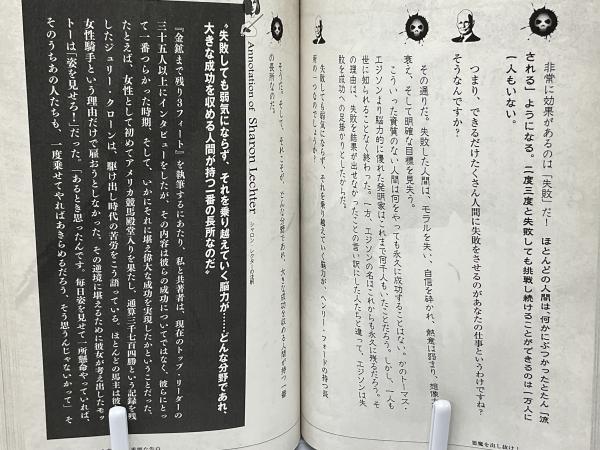 非常に効果があるのは「失敗」だ！ ほとんどの人間は、何かにぶつかったとたん「流
される」ようになる。二度三度と失敗しても挑戦し続けることができるのは一万人に
一人もいない。
つまり、できるだけたくさん人間に失敗をさせるのがあなたの仕事というわけですね？
そうなんですか？
その通りだ。失敗した人間は、モラルを失い、自信を砕かれ、熱意は弱まり、想像力
衰え、そして明確な目標を見失う。
こういった資質のない人間は何をやっても永久に成功することはない。かのトーマス・
エジソンより能力的に優れた発明家はこれまで何千人もいたことだろう。しかし、一人も
世に知られることなく終わった。一方、エジソンの名はこれからも永久に残るだろう。そ
の理由は、失敗を結果が出せなかったことの言い訳にした人たちと違って、エジソンは失
敗を成功への足掛かりとしたからだ。
失敗しても弱気にならず、それを乗り越えていく能力が、ヘンリー・フォードの持つ長
所の一つなのでしょうか？
そうだ。そして、それこそが、どんな分野であれ、大きな成功を収める人間が持つ一番
の長所なのだ。
悪魔を出し抜け！
Annotation of Sharon Lechter
シャロン・レクターの注釈
〝失敗しても弱気にならず、それを乗り越えていく能力が……どんな分野であれ、
大きな成功を収める人間が持つ一番の長所なのだ〟
『金鉱まで残り3フィート』を執筆するにあたり、私と共著者は、現在のトップ・リーダーの
三十五人以上にインタビューをしたが、その内容は彼らの成功についてではなく、彼らにとっ
て一番つらかった時期、そして、いかにそれに堪え偉大な成功を実現したかということだった。
たとえば、女性として初めてアメリカ競馬殿堂入りを果たし、通算三千七百四勝という記録を残
したジュリー・クローンは、駆け出し時代の苦労をこう語っている。ほとんどの馬主は彼
女性騎手という理由だけで雇おうとしなかった。その逆境に堪えるために彼女が考え出したモッ
トーは「姿を見せろ！」だった。「あるとき思ったんです。毎日姿を見せて一所懸命やっていれば、
そのうちあの人たちも、一度乗せてやればあきらめるだろう、そう思うんじゃないかって」そ